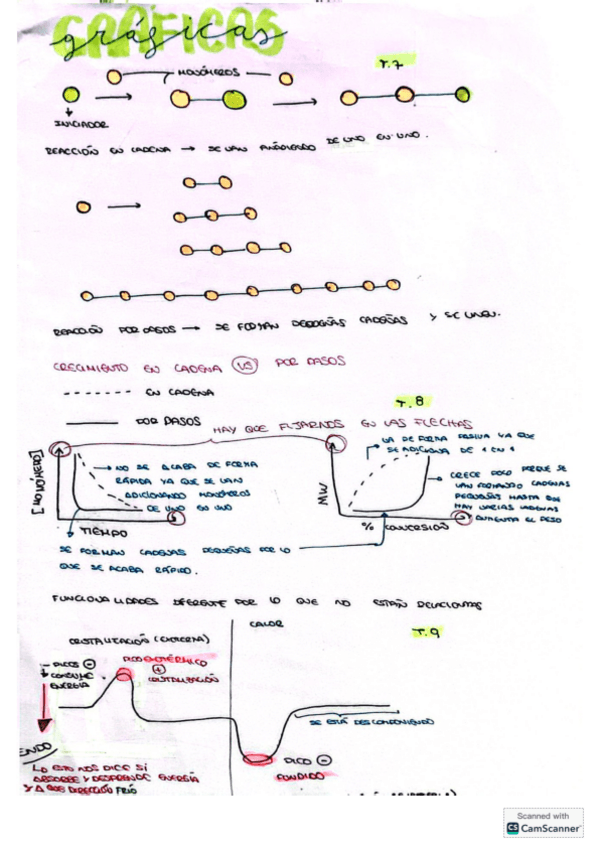 GRÁFICAS
gráficas
T.7
MONÓMEROS
INICIADOR
REACCIÓN EN CADENA → SE VAN AÑADIENDO DE UNO EN UNO.
REACCIÓN POR PASOS → SE FORMAN PEQUEÑAS CADENAS Y SE UNEN.
CRECIMIENTO EN CADENA VS POR PASOS
EN CADENA
T.8
POR PASOS
HAY QUE FIJARNOS EN LAS FLECHAS
[MONÓMERO]
NO SE ACABA DE FORMA
RÁPIDA YA QUE SE VAN
ADICIONANDO MONÓMEROS
DE UNO EN UNO
TIEMPO
SE FORMAN CADENAS PEQUEÑAS POR LO
QUE SE ACABA RÁPIDO.
VA DE FORMA PASIVA YA QUE
SE ADICIONA DE 1 EN 1
MW
CRECE POCO PORQUE SE
VAN FORMANDO CADENAS
PEQUEÑAS HASTA QUE
HAY VARIAS CADENAS
AUMENTA EL PESO
% CONVERSIÓN
FUNCIONALIDADES DIFERENTE POR LO QUE NO ESTÁN RELACIONADAS
T.9
CALOR
CRISTALIZACIÓN (EXOTERMA)
PICOS ⊖
CONSUME
ENERGÍA
PICO EXOTÉRMICO
⊕
CRISTALIZACIÓN
ENDO
SE ESTÁ DESCOMPONIENDO
PICO ⊖
FUNDIDO
LO NOS DICE SI
ABSORBE Y DESPRENDE ENERGÍA
Y A QUE DIRECCIÓN
Scanned with
CS CamScanner